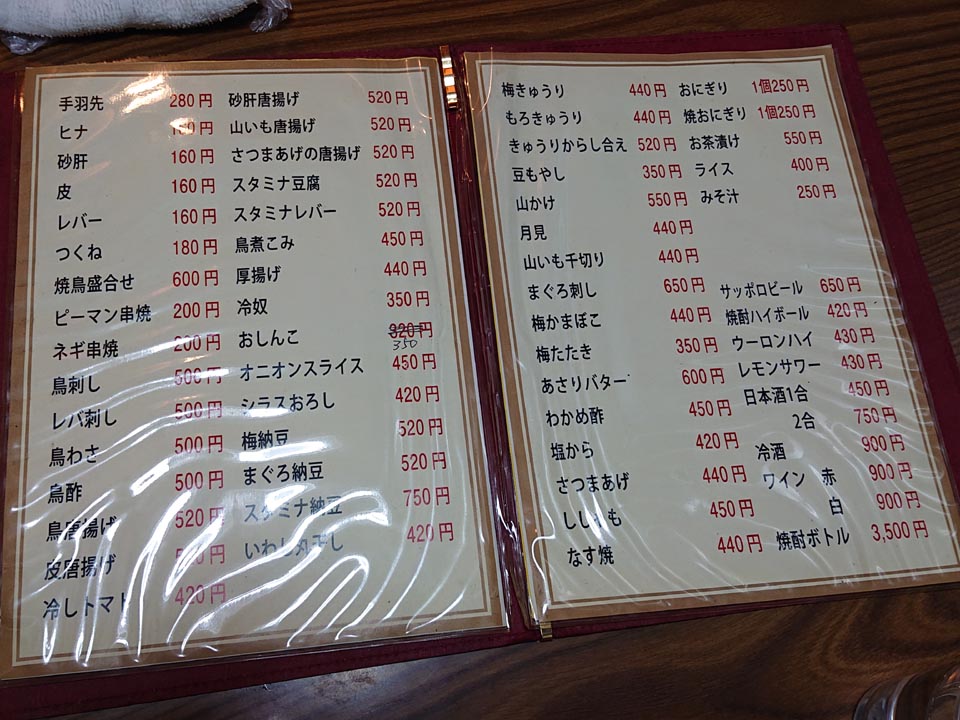 手羽先 280円
ヒナ
砂肝 160円
皮 160円
レバー 160円
つくね 180円
焼鳥盛合せ 600円
ピーマン串焼 200円
ネギ串焼 200円
鳥刺し 500円
レバ刺し 500円
鳥わさ 500円
鳥酢 500円
鳥唐揚げ 520円
皮唐揚げ
冷しトマト 420円
砂肝唐揚げ 520円
山いも唐揚げ 520円
さつまあげの唐揚げ 520円
スタミナ豆腐 520円
スタミナレバー 520円
鳥煮こみ 450円
厚揚げ 440円
冷奴 350円
おしんこ 320円
350
オニオンスライス 450円
シラスおろし 420円
梅納豆 520円
まぐろ納豆 520円
スタミナ納豆 750円
いわし丸干し 420円
梅きゅうり 440円
もろきゅうり 440円
きゅうりからし合え 520円
豆もやし 350円
山かけ 550円
月見 440円
山いも千切り 440円
まぐろ刺し 650円
梅かまぼこ 440円
梅たたき 350円
あさりバター 600円
わかめ酢 450円
塩から 420円
さつまあげ 440円
ししゃも 450円
なす焼 440円
おにぎり 1個250円
焼おにぎり 1個250円
お茶漬け 550円
ライス 400円
みそ汁 250円
サッポロビール 650円
焼酎ハイボール 420円
ウーロンハイ 430円
レモンサワー 430円
日本酒1合 450円
2合 750円
冷酒 900円
ワイン 赤 900円
白 900円
焼酎ボトル 3,500円